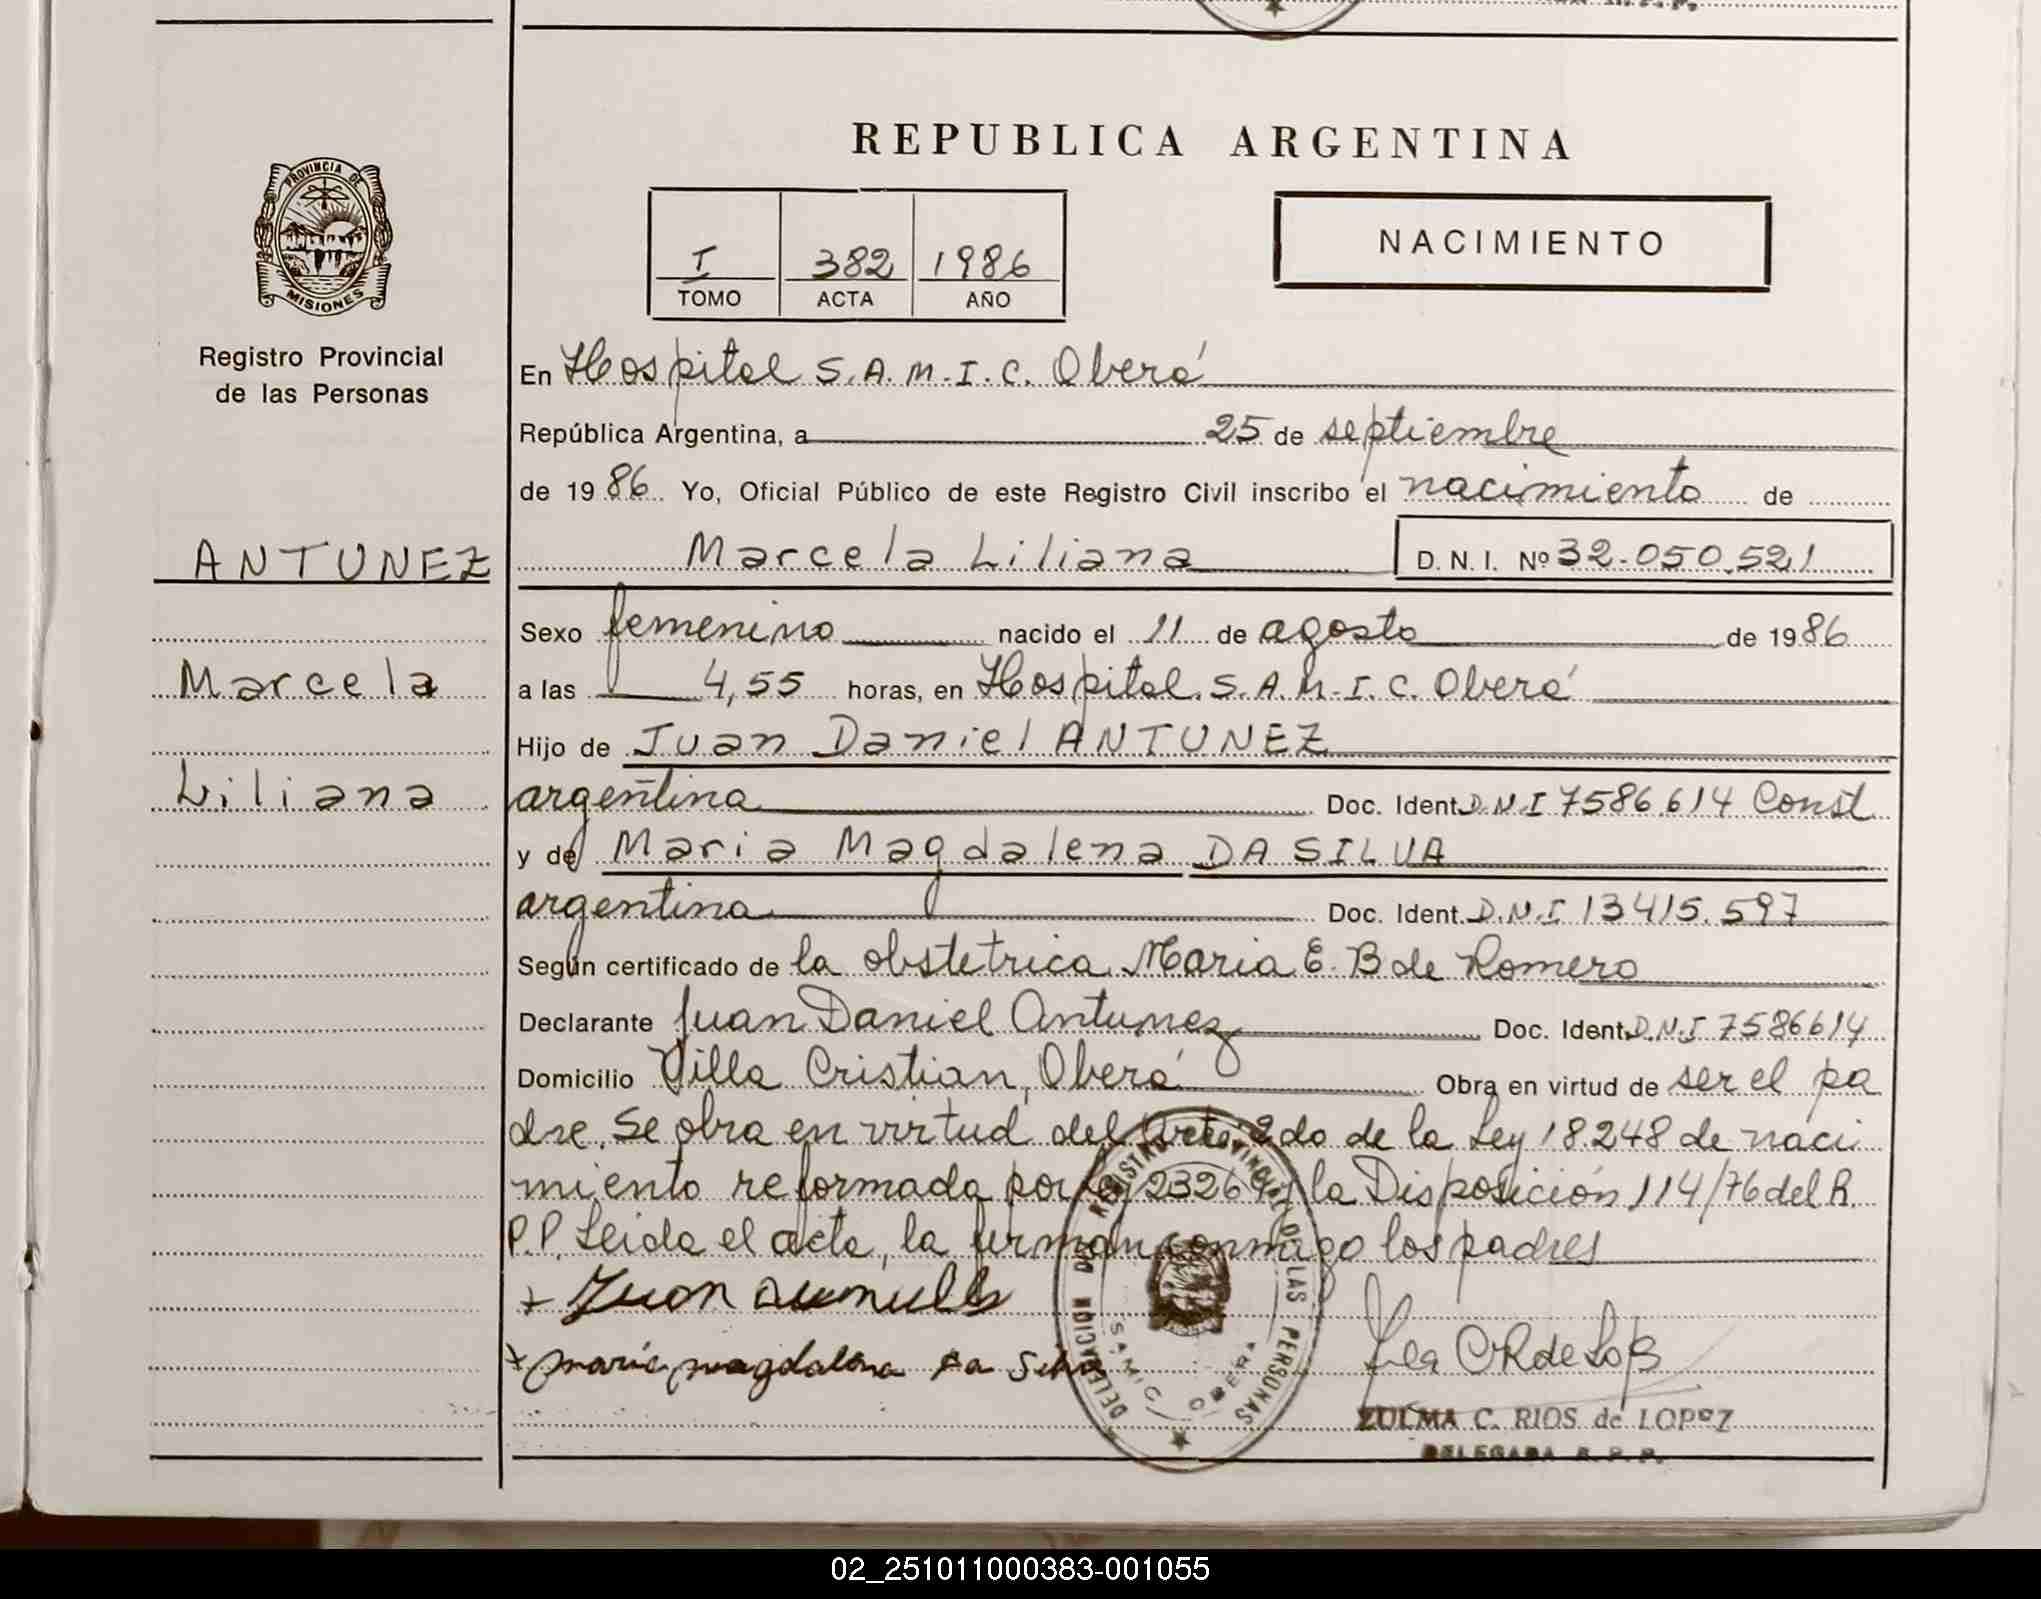 REPUBLICA ARGENTINA
PROVINCIA DE
MISIONES
Registro Provincial
de las Personas
I 382 1986
TOMO ACTA AÑO
NACIMIENTO
En Hospital S.A.M.I.C. Oberá
República Argentina, a 25 de septiembre
de 1986 Yo, Oficial Público de este Registro Civil inscribo el nacimiento de
ANTUNEZ
Marcela Liliana D. N. I. Nº 32.050.521
Sexo femenino nacido el 11 de agosto de 1986
Marcela
a las 4,55 horas, en Hospital S.A.M.I.C. Oberá
Hijo de Juan Daniel ANTUNEZ
Liliana
argentina Doc. Ident. D.N.I 7586.614 Const
y de Maria Magdalena DA SILVA
argentina Doc. Ident. D.N.I 13415.597
Según certificado de la obstetrica Maria E. B de Romero
Declarante Juan Daniel Antunez Doc. Ident. D.N.I 7586614
Domicilio Villa Cristian, Oberá Obra en virtud de ser el pa
dre. Se obra en virtud del 2do de la Ley 18.248 de naci
miento reformada por Ley 2326 y la Disposición 114/76 del R.
P.P. Leida el acta, la firman conmigo los padres
Juan
maria magdalena da Silva
DELEGACION DEL REGISTRO PROVINCIAL DE LAS PERSONAS
SAMIC OBERA
ZULMA C. RIOS de LOPEZ
DELEGADA R. P. P.
02_251011000383-001055